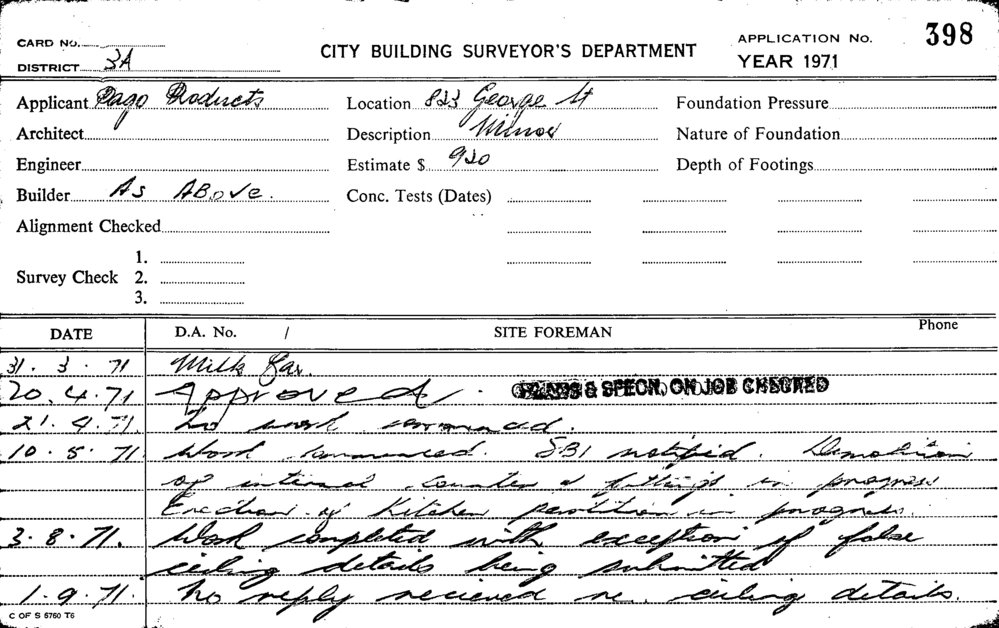 CARD No.
CITY BUILDING SURVEYOR'S DEPARTMENT
APPLICATION No. 398
DISTRICT 3A
YEAR 1971
Applicant Pago Products
Location 823 George St
Foundation Pressure
Architect
Description Minor
Nature of Foundation
Engineer
Estimate $ 920
Depth of Footings
Builder As Above.
Conc. Tests (Dates)
Alignment Checked
Survey Check 1.
2.
3.
DATE D.A. No. / SITE FOREMAN Phone
31. 3. 71 Milk Bar.
20. 4. 71 Approved. PLANS & SPECN. ON JOB CHECKED
21. 4. 71. No work commenced.
10. 5. 71. Work commenced. SBI notified. Demolition
of internal counter & fittings in progress
Erection of Kitchen partition in progress.
3. 8. 71. Work completed with exception of false
ceiling details being submitted
1. 9. 71. No reply recieved re. ceiling details.
C OF S 5760 T6